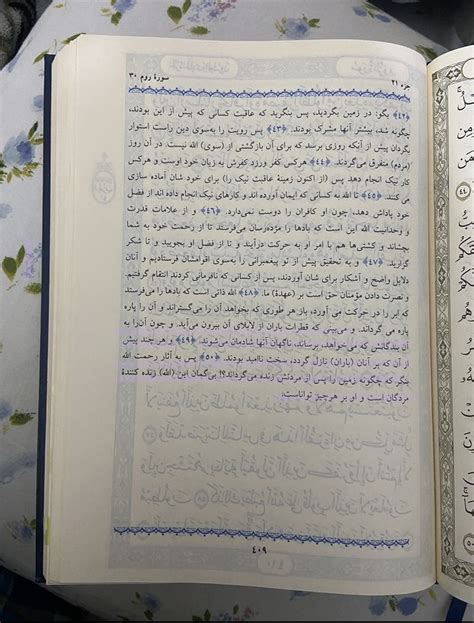 جزء ۲۱ سورهٔ روم ۳۰
﴿۴۲﴾ بگو: در زمین بگردید، پس بنگرید که عاقبت کسانی که پیش از این بودند،
چگونه شد، بیشتر آنها مشرک بودند. ﴿۴۳﴾ پس رویت را به‌سوی دین راست استوار
بگردان پیش از آنکه روزی برسد که برای آن بازگشتی از (سوی) الله نیست. در آن روز
(مردم) متفرق می‌گردند. ﴿۴۴﴾ هرکس کفر ورزد کفرش به زیان خود اوست و هرکس
کار نیک انجام دهد پس (از اکنون زمینه عاقبت نیک را) برای خود شان آماده سازی
می کنند. ﴿۴۵﴾ تا الله به کسانی که ایمان آورده اند و کارهای نیک انجام داده اند از فضل
خود پاداش دهد، چون او کافران را دوست نمی‌دارد. ﴿۴۶﴾ و از علامات قدرت
و وحدانیت الله این است که بادها را مژده‌رسان می‌فرستد تا از رحمت خود به شما
بچشاند و کشتی‌ها هم با امر او به حرکت درآیند و تا از فضل او بجویید و تا شکر
گزارید. ﴿۴۷﴾ و به تحقیق پیش از تو پیغمبرانی را به‌سوی اقوامشان فرستادیم و آنان
دلایل واضح و آشکار برای شان آوردند، پس از کسانی که نافرمانی کردند انتقام گرفتیم.
و نصرت دادن مؤمنان حق است بر (عهدهٔ) ما. ﴿۴۸﴾ الله ذاتی است که بادها را می‌فرستد
که ابر را در حرکت می آورد، باز هر طوری که بخواهد آن را می‌گستراند و آن را پاره
پاره می گرداند. و می‌بینی که قطرات باران از لابلای آن بیرون می‌آید. و چون آن‌را به
آن بندگانشی که می‌خواهد، برساند، ناگهان آنها شادمان می‌شوند. ﴿۴۹﴾ و هر چند پیش
از آن که بر آنان (باران) نازل گردد، سخت ناامید بودند. ﴿۵۰﴾ پس به آثار رحمت الله
بنگر که چگونه زمین را پس از مردنش زنده می‌گرداند؟! بی‌گمان این (الله) زنده کنندهٔ
مردگان است و او بر هرچیز تواناست.
۴۰۹